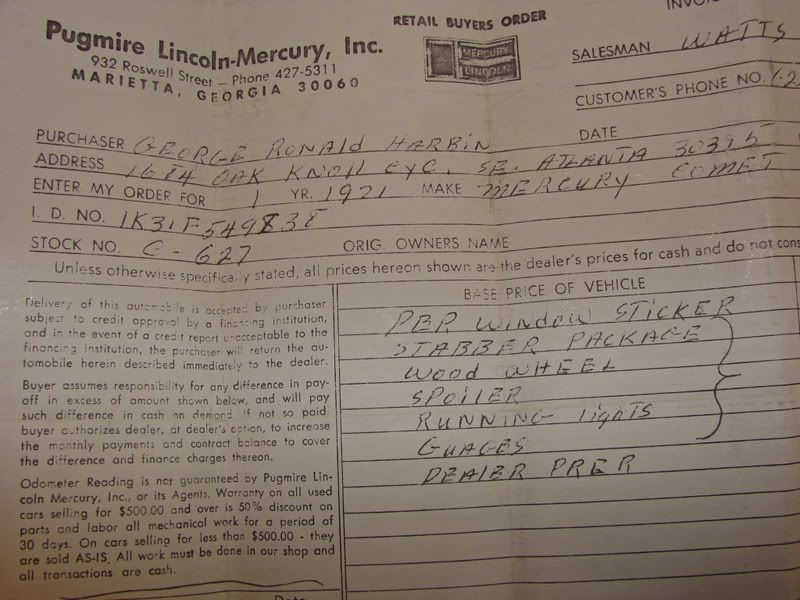 INVOI
RETAIL BUYERS ORDER
Pugmire Lincoln-Mercury, Inc.
932 Roswell Street — Phone 427-5311
MARIETTA, GEORGIA 30060
MERCURY
LINCOLN
SALESMAN WATTS
CUSTOMER'S PHONE NO.
PURCHASER GEORGE RONALD HARBIN
DATE
ADDRESS 1684 OAK KNOLL SE. ATLANTA 30315
ENTER MY ORDER FOR 1 YR. 1971 MAKE MERCURY COMET
I. D. NO. 1K31F549838
STOCK NO. C-627 ORIG. OWNERS NAME
Unless otherwise specifically stated, all prices hereon shown are the dealer's prices for cash and do not cons
Delivery of this automobile is accepted by purchaser
subject to credit approval by a financing institution,
and in the event of a credit report unacceptable to the
financing institution, the purchaser will return the au-
tomobile herein described immediately to the dealer.
Buyer assumes responsibility for any difference in pay-
off in excess of amount shown below, and will pay
such difference in cash on demand If not so paid
buyer authorizes dealer, at dealer's option, to increase
the monthly payments and contract balance to cover
the difference and finance charges thereon.
Odometer Reading is not guaranteed by Pugmire Lin-
coln Mercury, Inc., or its Agents. Warranty on all used
cars selling for $500.00 and over is 50% discount on
parts and labor all mechanical work for a period of
30 days. On cars selling for less than $500.00 - they
are sold AS-IS. All work must be done in our shop and
all transactions are cash.
Date
BASE PRICE OF VEHICLE
PER WINDOW STICKER
STABBER PACKAGE
WOOD WHEEL
SPOILER
RUNNING lights
GUAGES
DEALER PREP